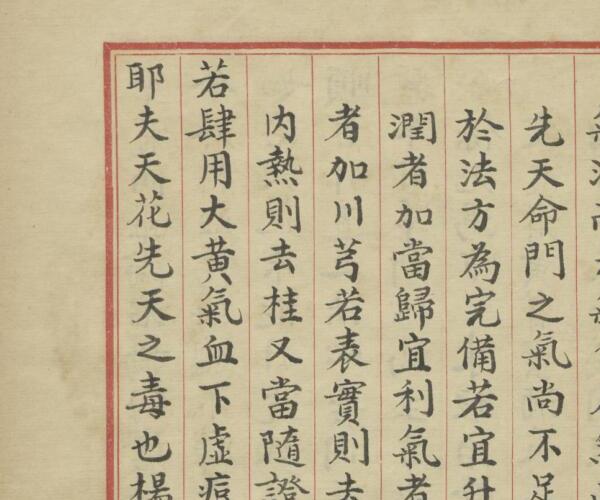 先天命門之氣尚不足
於法方為完備若宜升
潤者加當歸宜利氣者
者加川芎若表實則去
内熱則去桂又當隨證
若肆用大黃氣血下虛痘
耶夫天花先天之毒也楊